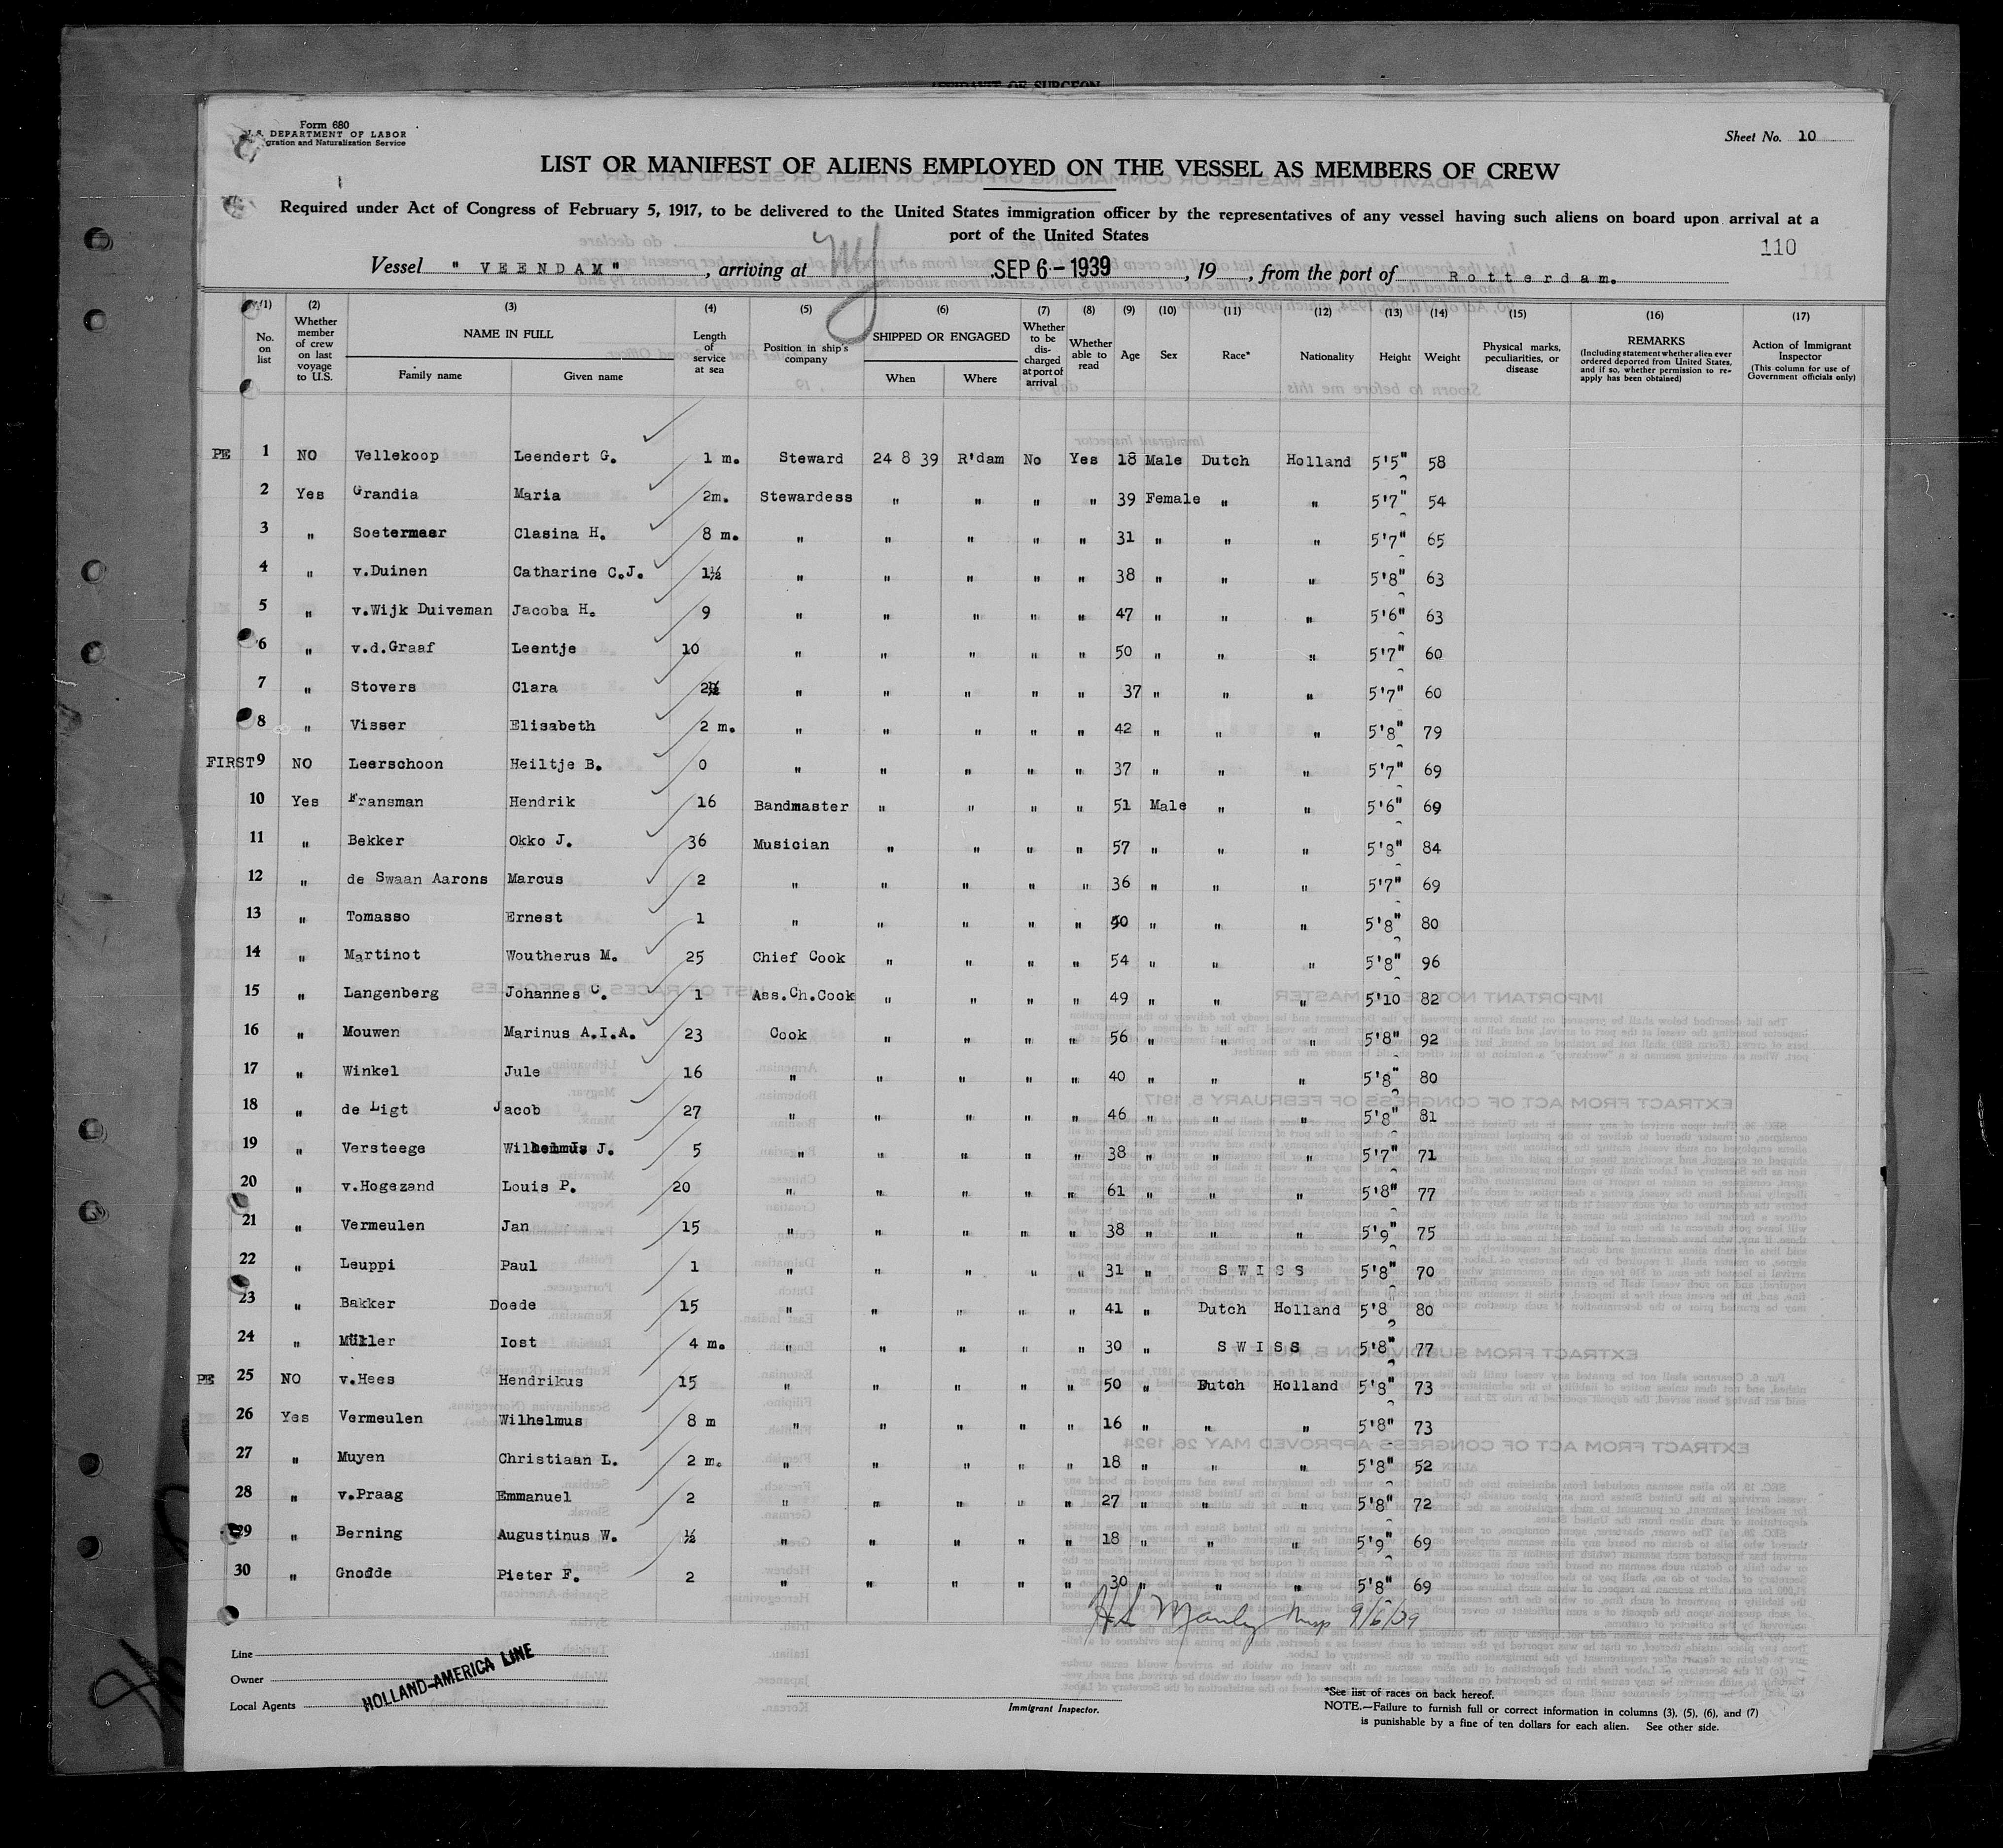 AFFIDAVIT OF SURGEON
Form 680
U.S. DEPARTMENT OF LABOR
gration and Naturalization Service
Sheet No. 10
LIST OR MANIFEST OF ALIENS EMPLOYED ON THE VESSEL AS MEMBERS OF CREW
Required under Act of Congress of February 5, 1917, to be delivered to the United States immigration officer by the representatives of any vessel having such aliens on board upon arrival at a
port of the United States
110
Vessel " VEENDAM" , arriving at NY SEP 6 - 1939 , 19 , from the port of Rotterdam.
(1) No. on list
(2) Whether member of crew on last voyage to U.S.
(3) NAME IN FULL Family name Given name
(4) Length of service at sea
(5) Position in ship's company
(6) SHIPPED OR ENGAGED When Where
(7) Whether to be discharged at port of arrival
(8) Whether able to read
(9) Age
(10) Sex
(11) Race*
(12) Nationality
(13) Height
(14) Weight
(15) Physical marks, peculiarities, or disease
(16) REMARKS (Including statement whether alien ever ordered deported from United States, and if so, whether permission to reapply has been obtained)
(17) Action of Immigrant Inspector (This column for use of Government officials only)
PE 1 NO Vellekoop Leendert G. 1 m. Steward 24 8 39 R'dam No Yes 18 Male Dutch Holland 5'5" 58
2 Yes Grandia Maria 2m. Stewardess " " " " 39 Female " " 5'7" 54
3 " Soetermeer Clasina H. 8 m. " " " " " 31 " " " 5'7" 65
4 " v.Duinen Catharine C.J. 1½ " " " " " 38 " " " 5'8" 63
5 " v.Wijk Duiveman Jacoba H. 9 " " " " " 47 " " " 5'6" 63
6 " v.d.Graaf Leentje 10 " " " " " 50 " " " 5'7" 60
7 " Stovers Clara 2½ " " " " " 37 " " " 5'7" 60
8 " Visser Elisabeth 2 m. " " " " " 42 " " " 5'8" 79
FIRST 9 NO Leerschoon Heiltje B. 0 " " " " " 37 " " " 5'7" 69
10 Yes Fransman Hendrik 16 Bandmaster " " " " 51 Male " " 5'6" 69
11 " Bekker Okko J. 36 Musician " " " " 57 " " " 5'8" 84
12 " de Swaan Aarons Marcus 2 " " " " " 36 " " " 5'7" 69
13 " Tomasso Ernest 1 " " " " " 40 " " " 5'8" 80
14 " Martinot Woutherus M. 25 Chief Cook " " " " 54 " " " 5'8" 96
15 " Langenberg Johannes C. 1 Ass.Ch.Cook " " " " 49 " " " 5'10 82
16 " Mouwen Marinus A.I.A. 23 Cook " " " " 56 " " " 5'8" 92
17 " Winkel Jule 16 " " " " " 40 " " " 5'8" 80
18 " de Ligt Jacob 27 " " " " " 46 " " " 5'8" 81
19 " Versteege Wilhelmus J. 5 " " " " " 38 " " " 5'7" 71
20 " v.Hogezand Louis P. 20 " " " " " 61 " " " 5'8" 77
21 " Vermeulen Jan 15 " " " " " 38 " " " 5'9" 75
22 " Leuppi Paul 1 " " " " " 31 " SWISS 5'8" 70
23 " Bakker Doede 15 " " " " " 41 " Dutch Holland 5'8 80
24 " Müller Iost 4 m. " " " " " 30 " SWISS 5'8" 77
PE 25 NO v.Hees Hendrikus 15 " " " " " 50 " Dutch Holland 5'8" 73
26 Yes Vermeulen Wilhelmus 8 m " " " " " 16 " " " 5'8" 73
27 " Muyen Christiaan L. 2 m. " " " " " 18 " " " 5'8" 52
28 " v.Praag Emmanuel 2 " " " " " 27 " " " 5'8" 72
29 " Berning Augustinus W. ½ " " " " " 18 " " " 5'9" 69
30 " Gnodde Pieter F. 2 " " " " " 30 " " " 5'8" 69
H S Manley Insp 9/6/39
Line
Owner
Local Agents
HOLLAND-AMERICA LINE
Immigrant Inspector.
*See list of races on back hereof.
NOTE.—Failure to furnish full or correct information in columns (3), (5), (6), and (7)
is punishable by a fine of ten dollars for each alien. See other side.